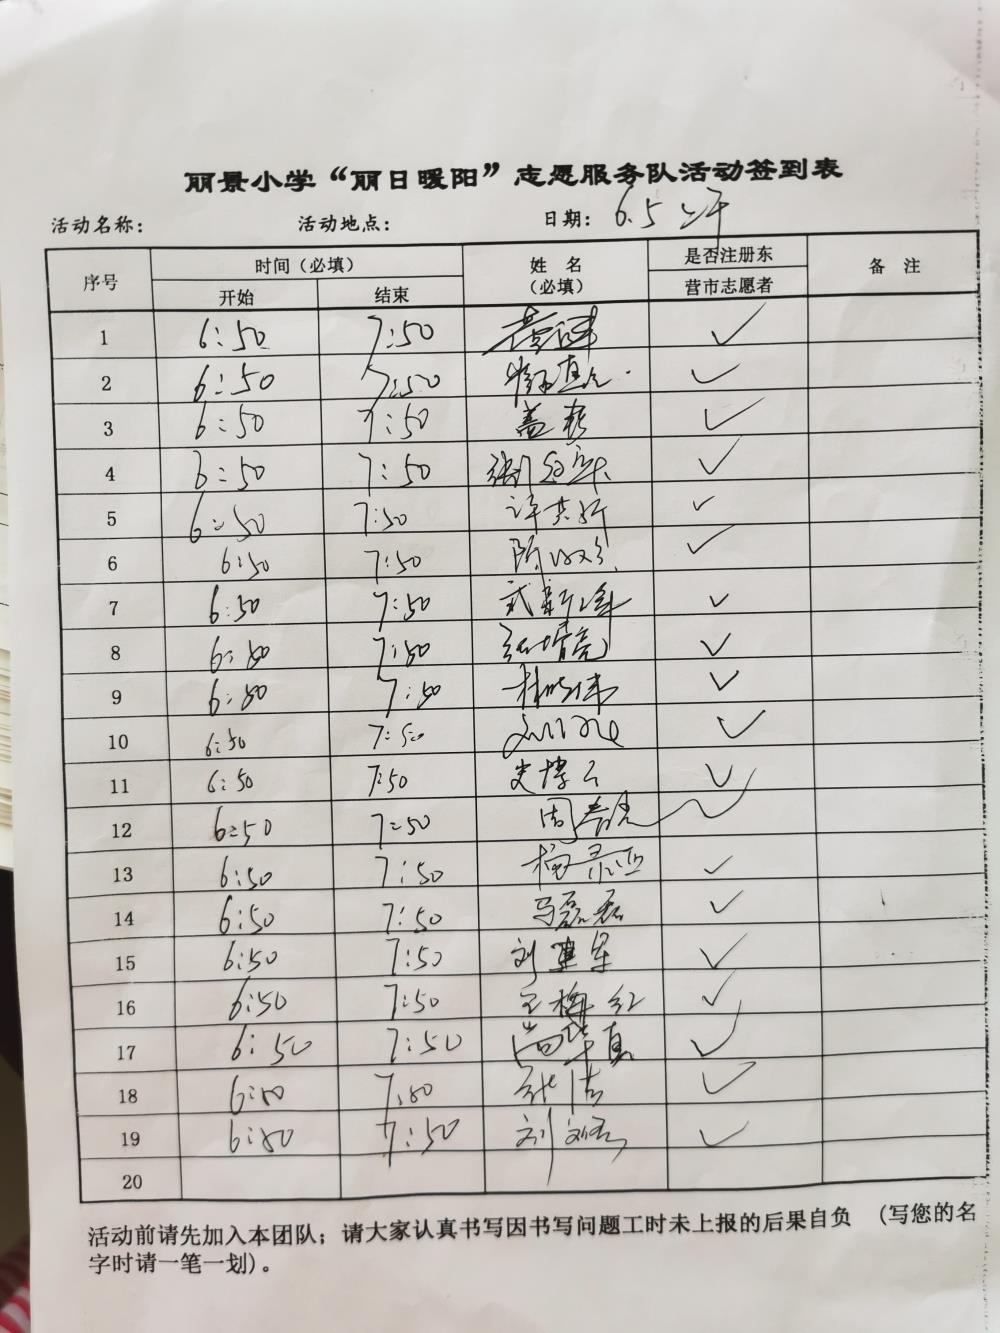 丽景小学“丽日暖阳”志愿服务队活动签到表
活动名称: 活动地点: 日期: 6.5 上午
序号 时间（必填） 姓 名 （必填） 是否注册东营市志愿者 备 注
开始 结束
1 6:50 7:50 ✓
2 6:50 7:50 ✓
3 6:50 7:50 盖 ✓
4 6:50 7:50 ✓
5 6:50 7:50 许 ✓
6 6:50 7:50 ✓
7 6:50 7:50 武新军 ✓
8 6:50 7:50 ✓
9 6:50 7:50 林晓伟 ✓
10 6:50 7:50 ✓
11 6:50 7:50 史博云 ✓
12 6:50 7:50 周春悦 ✓
13 6:50 7:50 杨 ✓
14 6:50 7:50 马磊磊 ✓
15 6:50 7:50 刘建军 ✓
16 6:50 7:50 王梅红 ✓
17 6:50 7:50 尚华真 ✓
18 6:50 7:50 张洁 ✓
19 6:50 7:50 刘 ✓
20
活动前请先加入本团队；请大家认真书写因书写问题工时未上报的后果自负 （写您的名
字时请一笔一划)。